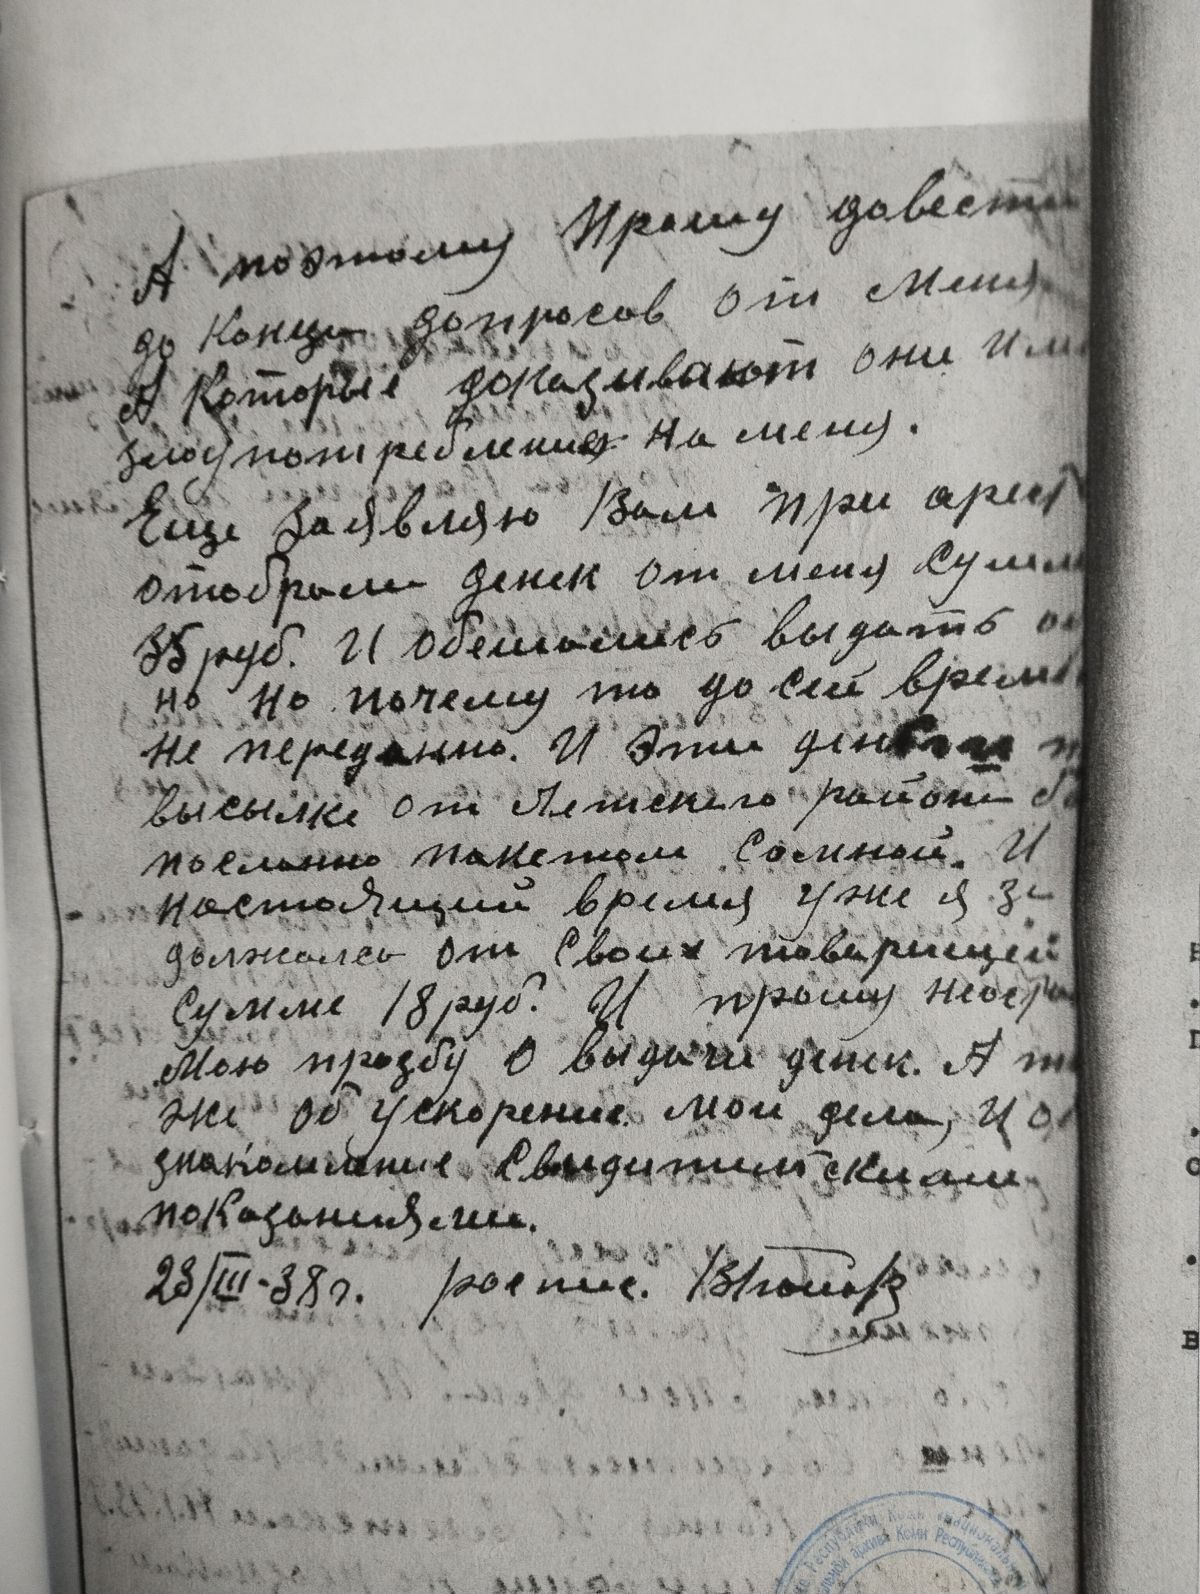 А поэтому Прошу довести
до конца допросов от меня
А которые доказывают они ими
злоупотребления на меня.
Еще заявляю Вам при арест
отобрали денек от меня сумм
35 руб. И обешались выдать
но но почему то до сей время
не переданно. И эти деньги
высылке от Летского района
посланно пакетом сомной. И
настоящий время уже я за
должался от своих товарищей
сумме 18 руб. И прошу неост
Мою прозбу о выдачи денек. А та
же об ускорение мои дела, и оз
знакомление Свидитильскиами
показаниями.
23/III-38 г. роспис.